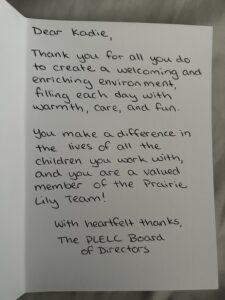 Dear Kadie,
Thank you for all you do
to create a welcoming and
enriching environment,
filling each day with
warmth, care, and fun.
You make a difference in
the lives of all the
children you work with,
and you are a valued
member of the Prairie
Lily Team!
With heartfelt thanks,
The PLELC Board
of Directors